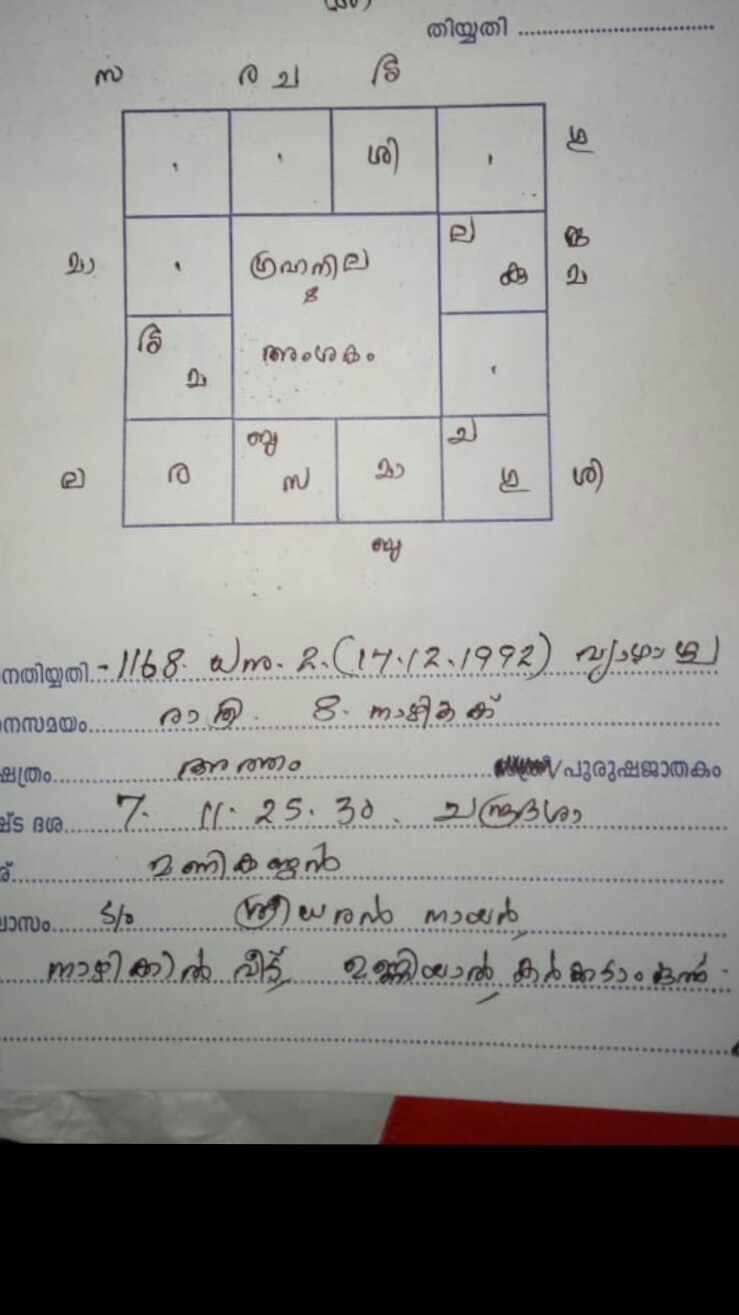 തിയ്യതി
സ ര ച ശി
ഗു
ല
മാ ഗ്രഹനില കു കു മ
&
ശി
മ അംശകം
ബു ച
ല ര സ മാ ഗു ശി
ബു
നതിയ്യതി - 1168. ധനു. 2. (17.12.1992) വ്യാഴാഴ്ച
നസമയം രാത്രി. 8. നാഴികക്ക്
ക്ഷത്രം അത്തം /പുരുഷജാതകം
ഷ്ട ദശ 7. 11. 25. 30. ചന്ദ്രദശാ
ര് മണികണ്ഠൻ
ലാസം S/o ശ്രീധരൻ നായർ,
നാഴിക്കൽ വീട്, ഉണ്ണിയാൽ, കർക്കടാംകുന്ന്.